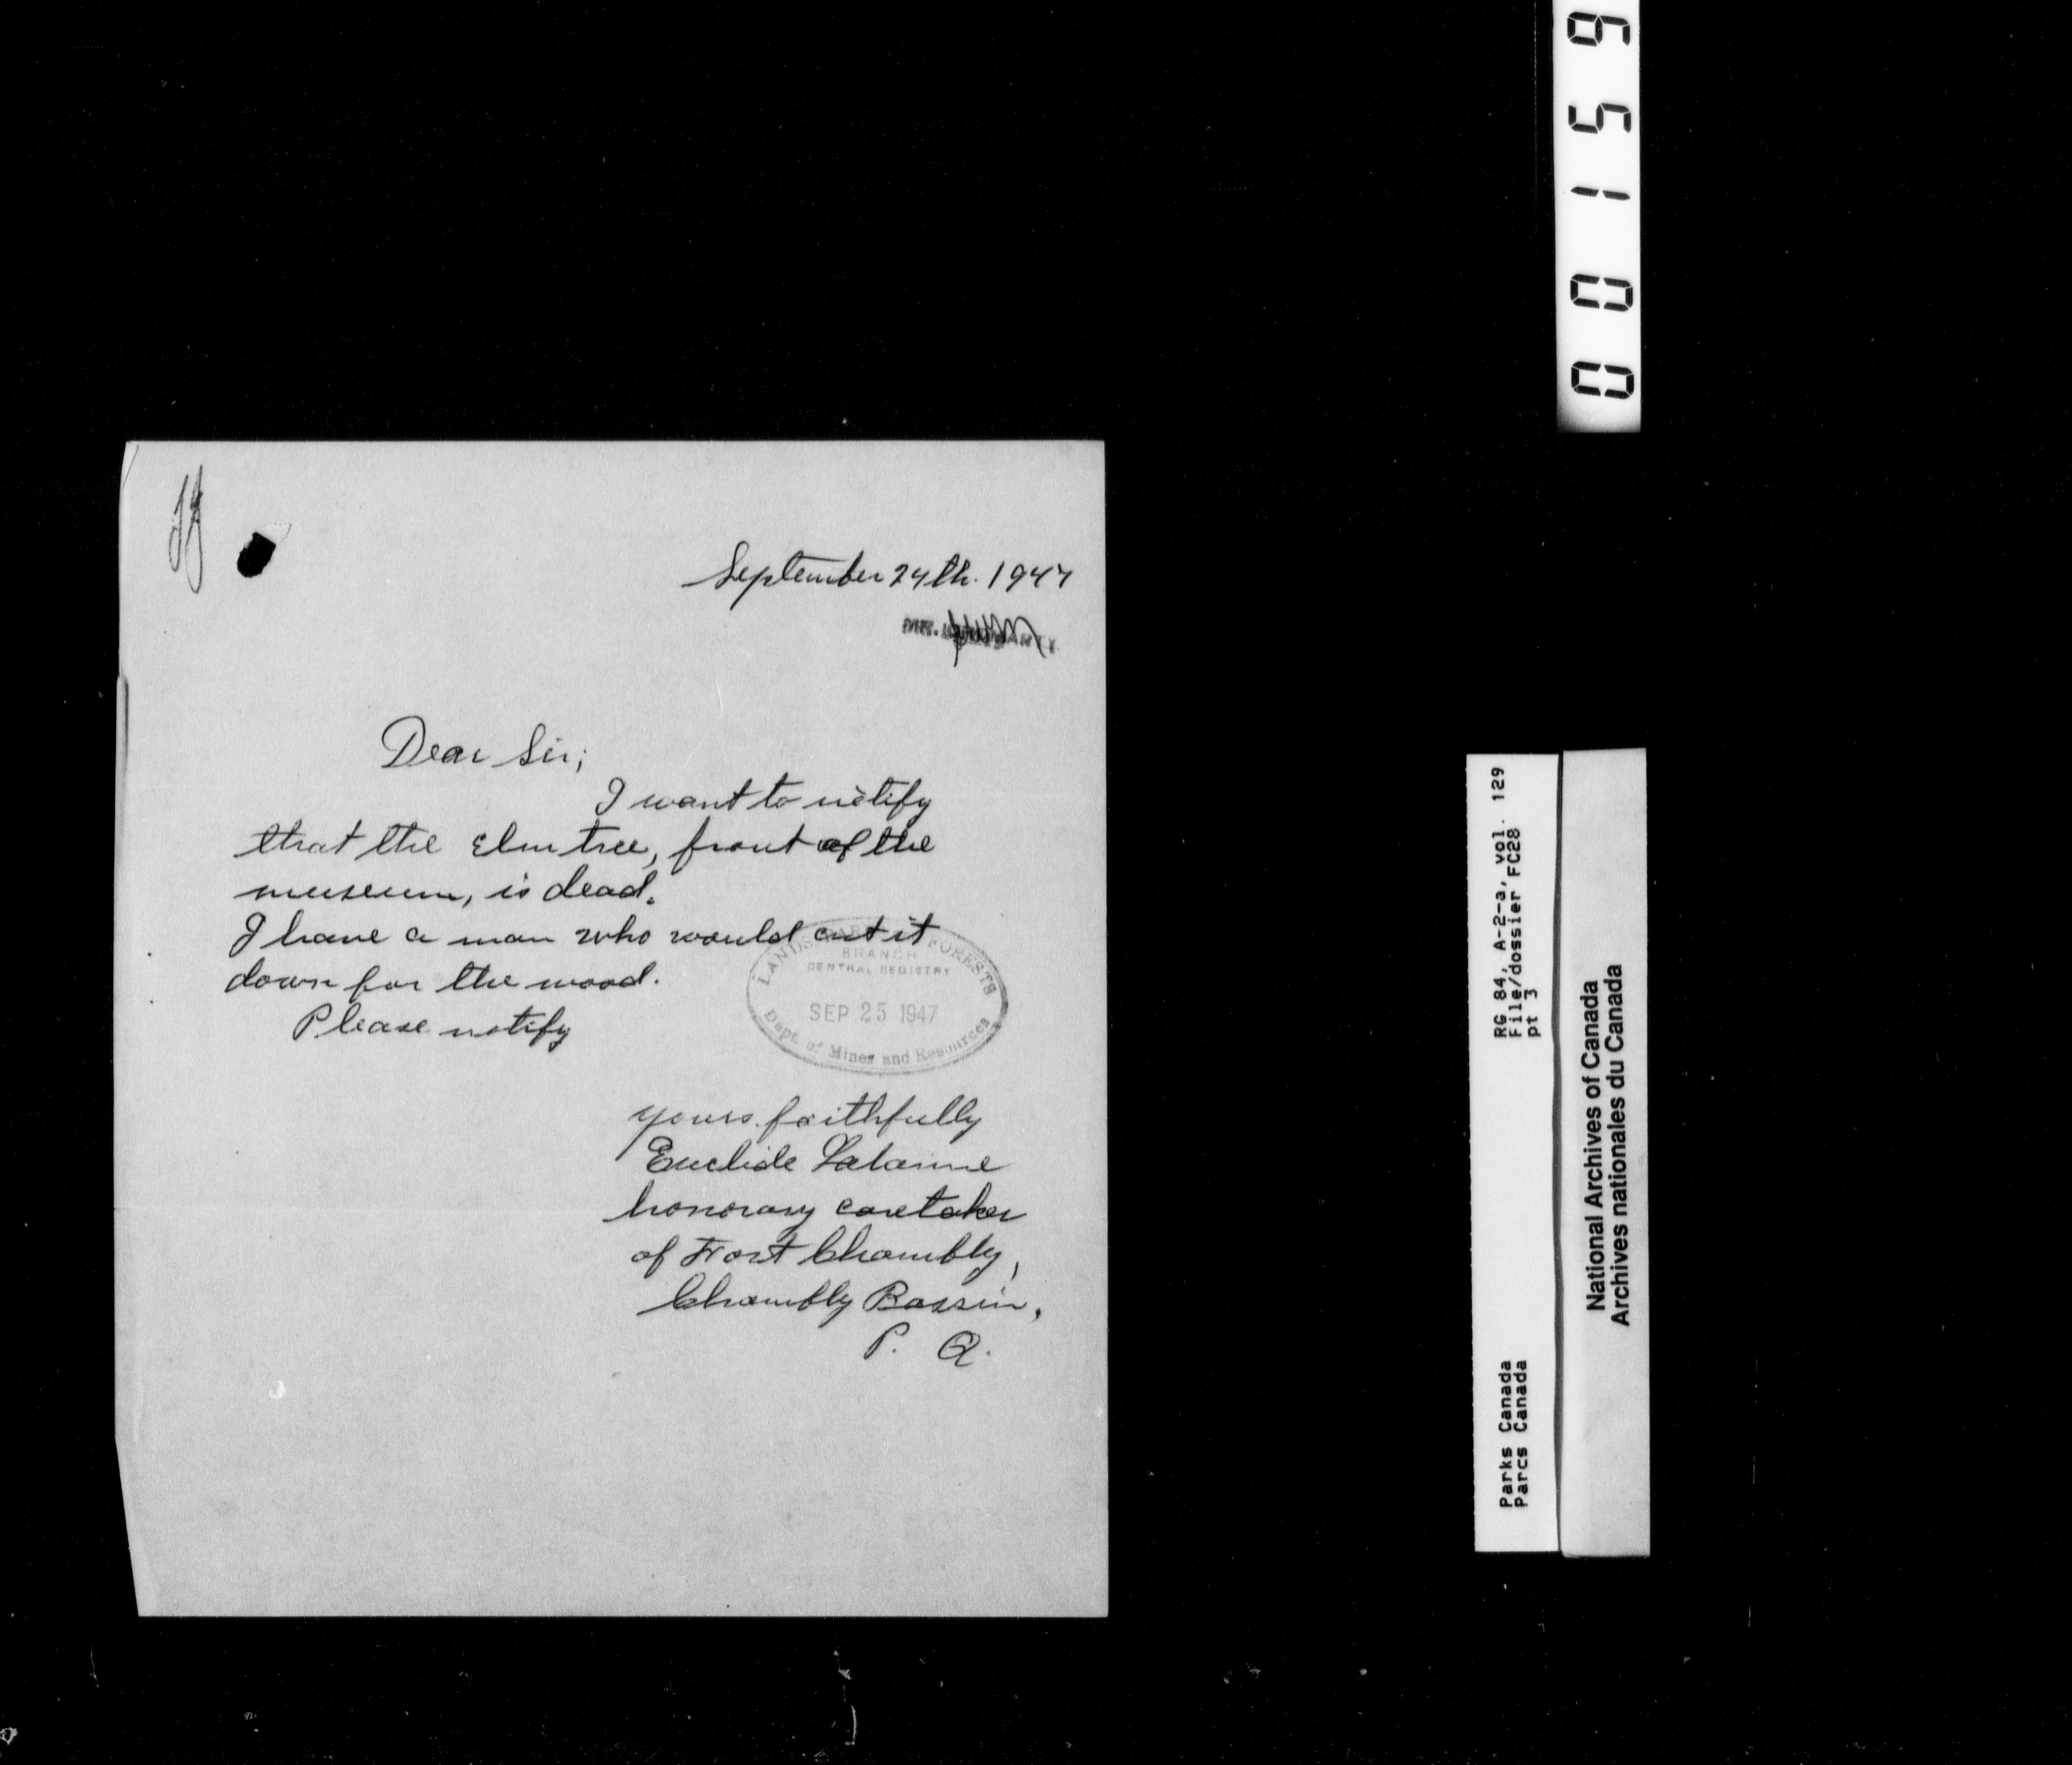 September 24th. 1947
MR.
Dear Sir;
I want to notify
that the elm tree, front of the
museum, is dead.
I have a man who would cut it
down for the wood.
Please notify
LANDS PARKS FORESTS
BRANCH
CENTRAL REGISTRY
SEP 25 1947
Dept. of Mines and Resources
yours faithfully
Euclide Lalanne
honorary caretaker
of Fort Chambly,
Chambly Bassin,
P. Q.
00159
RG 84, A-2-a, vol. 129
File/dossier FC28
pt 3
Parks Canada
Parcs Canada
National Archives of Canada
Archives nationales du Canada